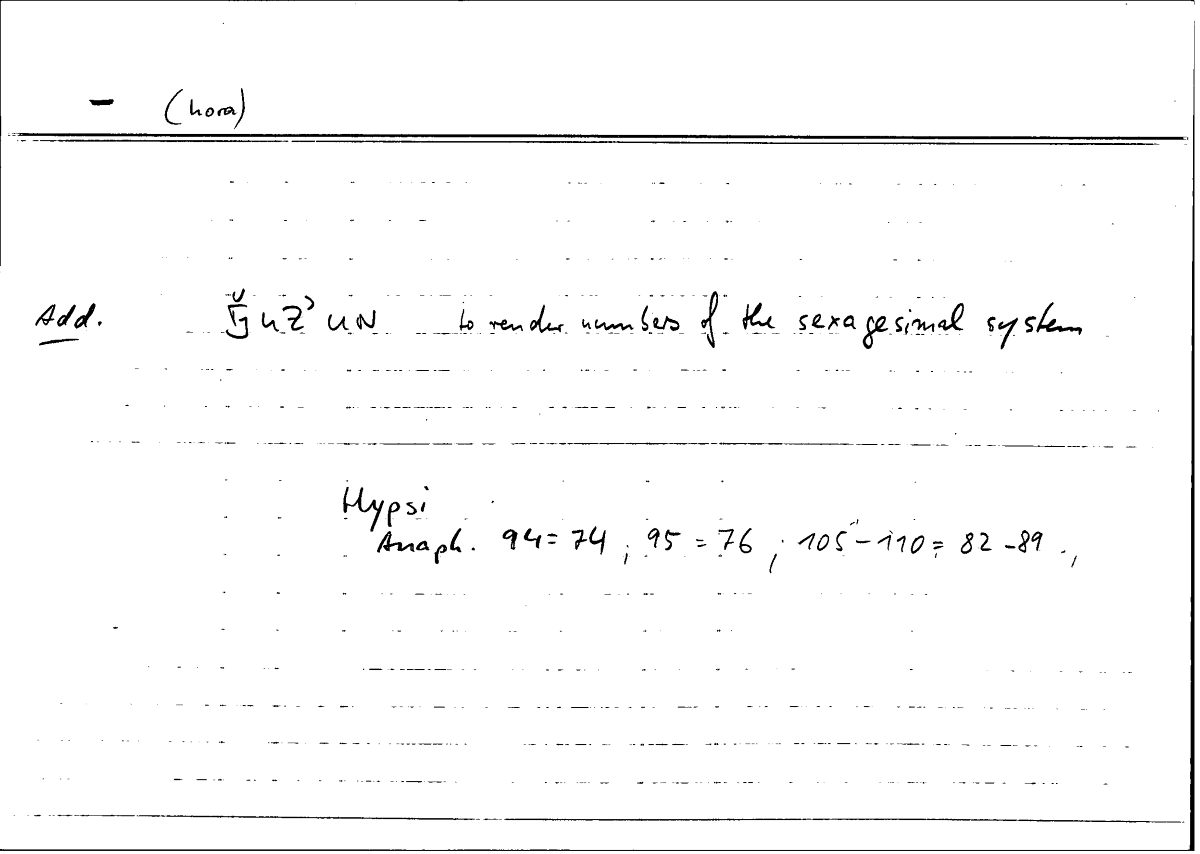 – (hora)
Add. to render numbers of the sexagesimal system
Hypsi
Anaph. 94 = 74 ; 95 = 76 ; 105 – 110 = 82 – 89 .,